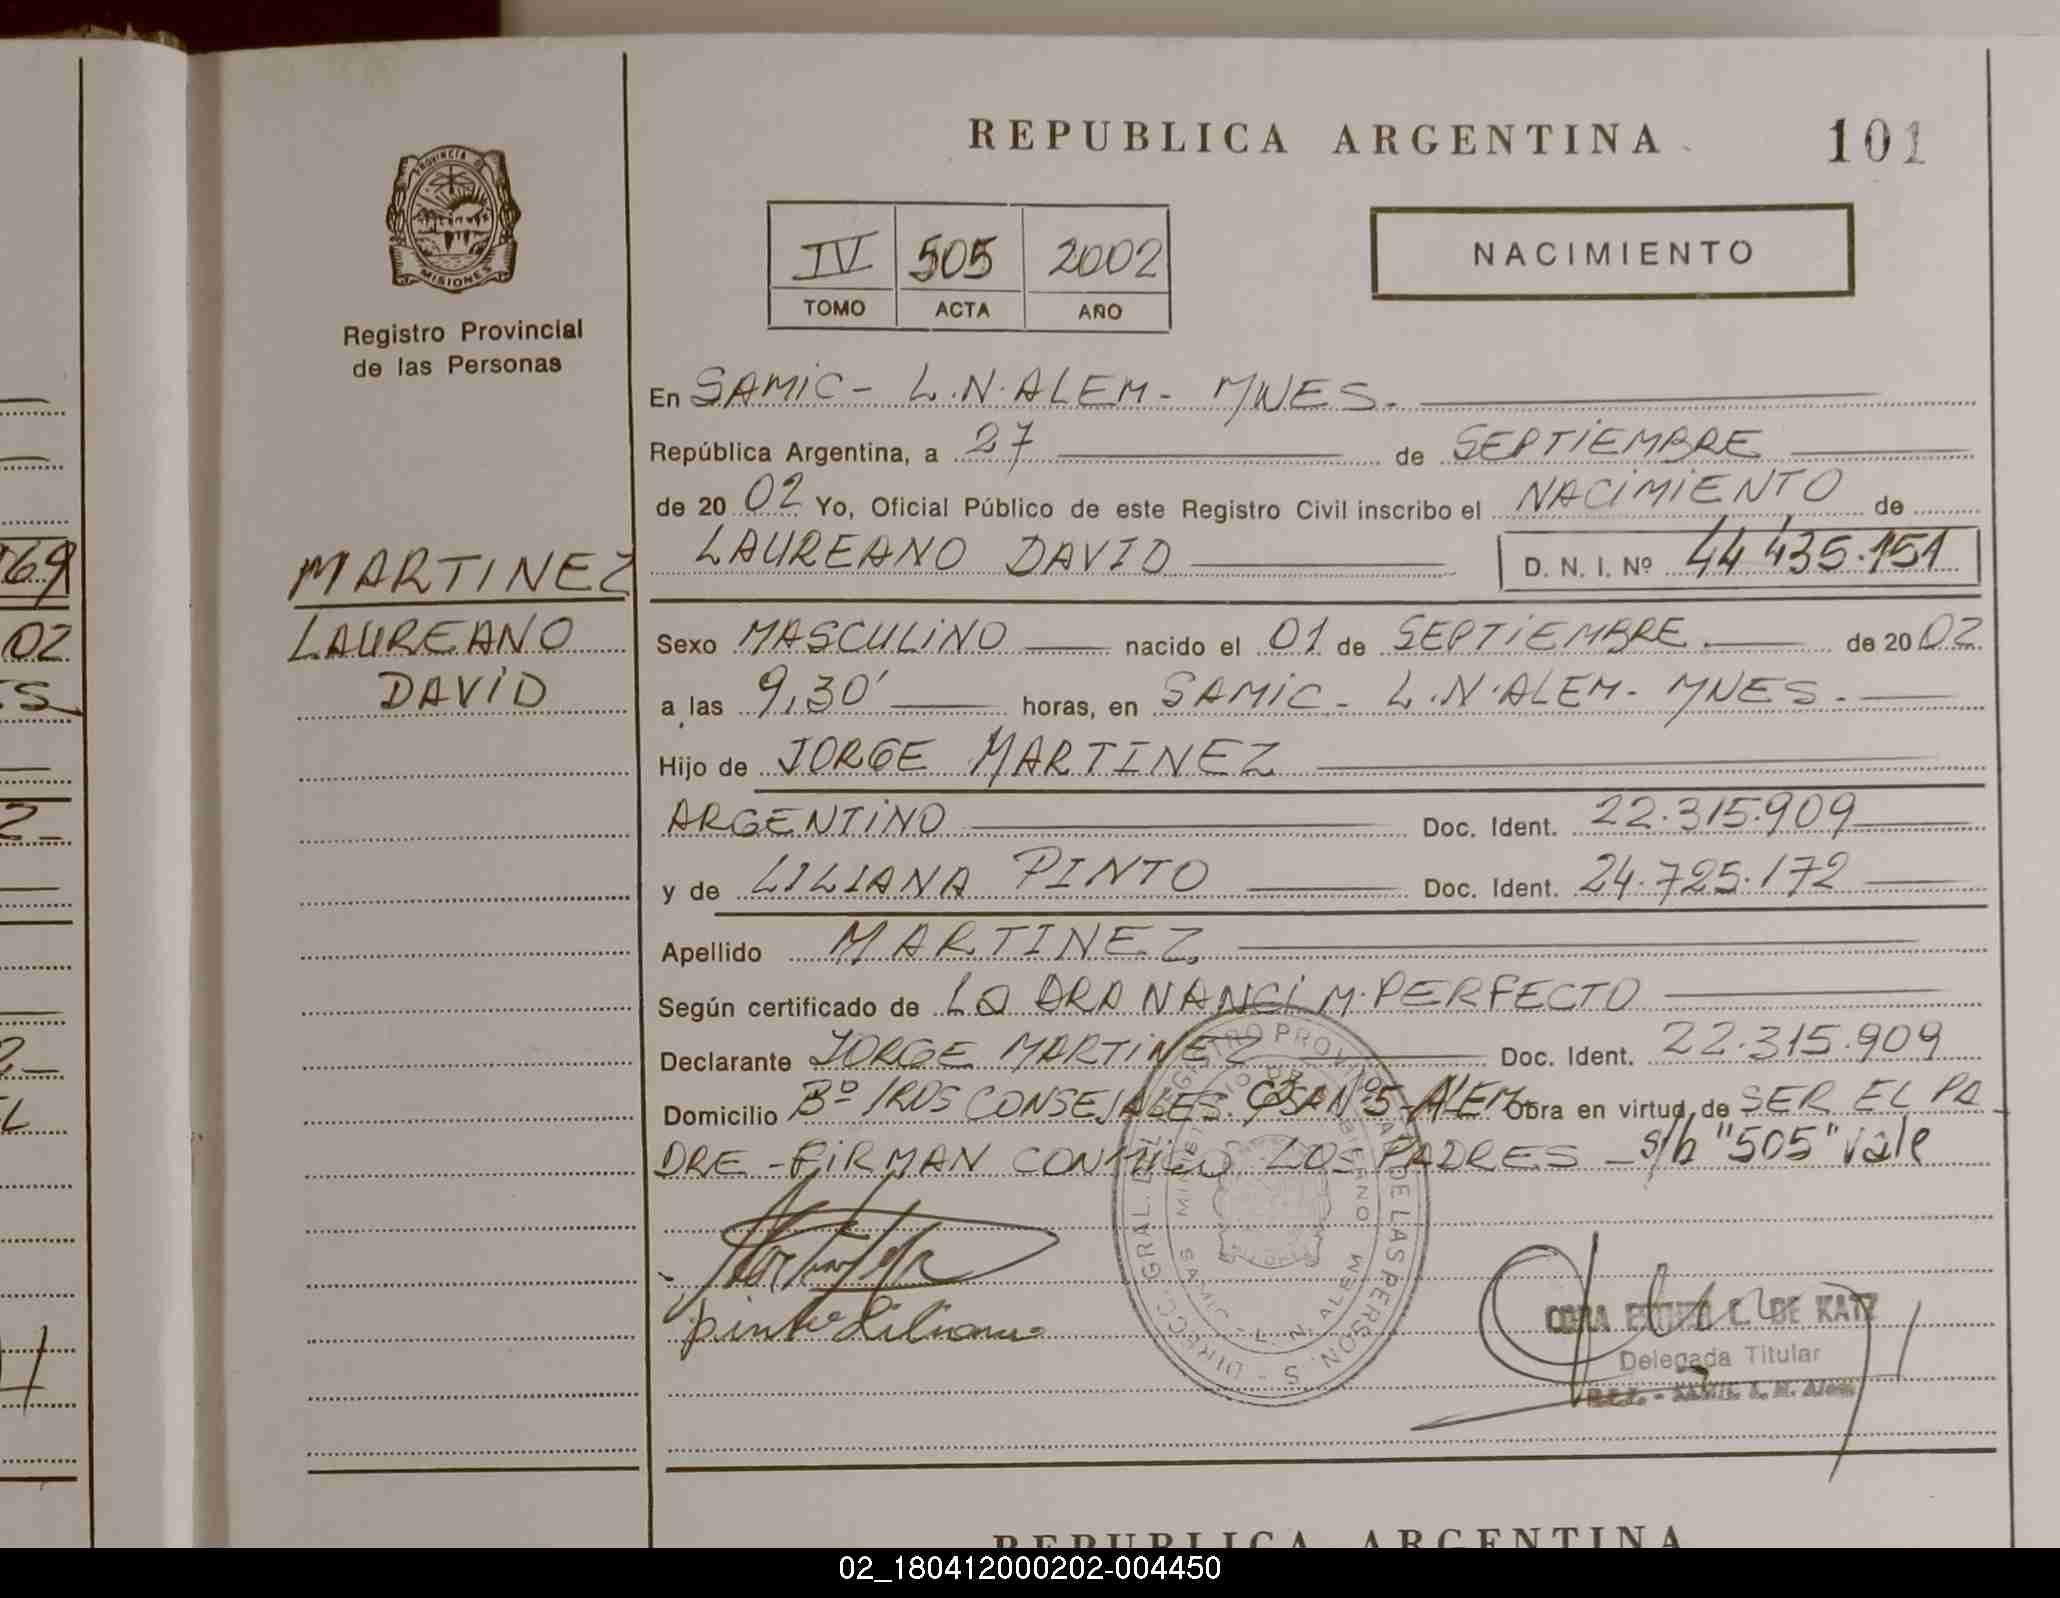 REPUBLICA ARGENTINA
101
PROVINCIA D
MISIONES
Registro Provincial
de las Personas
IV 505 2002
TOMO ACTA AÑO
NACIMIENTO
En SAMIC - L.N. ALEM - MNES.
República Argentina, a 27 de SEPTIEMBRE
de 2002 Yo, Oficial Público de este Registro Civil inscribo el NACIMIENTO de
LAUREANO DAVID D. N. I. Nº 44.435.151
MARTINEZ
LAUREANO
DAVID
Sexo MASCULINO nacido el 01 de SEPTIEMBRE de 2002
a las 9,30' horas, en SAMIC - L.N. ALEM - MNES -
Hijo de JORGE MARTINEZ
ARGENTINO Doc. Ident. 22.315.909
y de LILIANA PINTO Doc. Ident. 24.725.172
Apellido MARTINEZ
Según certificado de LA DRA NANCI M. PERFECTO
Declarante JORGE MARTINEZ Doc. Ident. 22.315.909
Domicilio Bº IROS CONSEJALES. CSA Nº5 ALEM Obra en virtud de SER EL PA
DRE - FIRMAN CONMIGO LOS PADRES - s/b "505" vale
pinto Liliana
C. DE KATZ
Delegada Titular
SAMIC L. N. Alem
69
02
ES
2-
REPUBLICA ARGENTINA
02_180412000202-004450